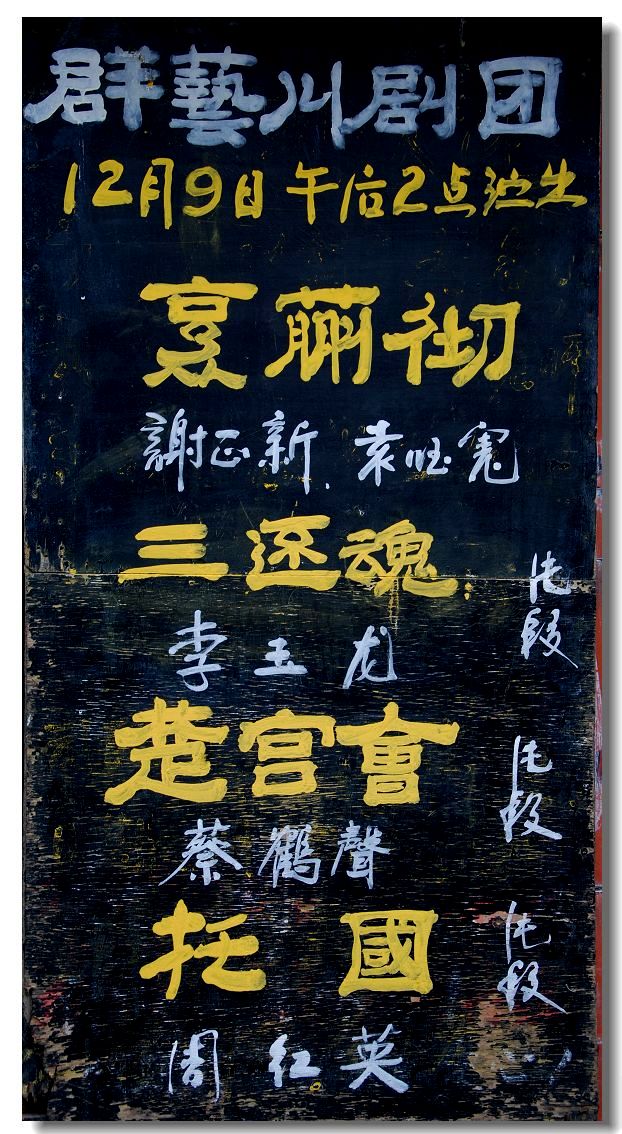 群藝川剧团
12月9日 午后2点演出
烹蒯彻
謝正新. 袁旺
三还魂
李玉龙
段
楚宫會
段
蔡鶴聲
托國
段
周红英